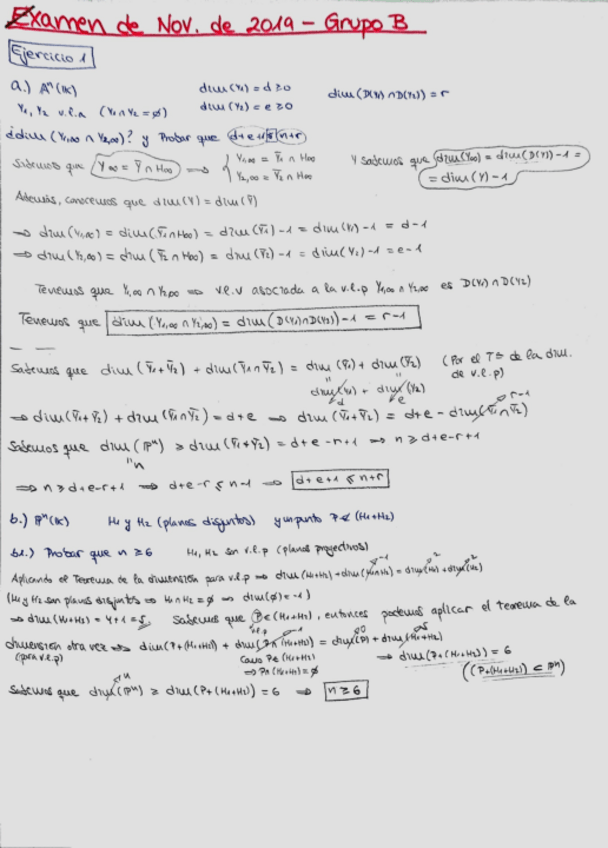 Examen de Nov. de 2019 - Grupo B
Ejercicio 1
a.) Aⁿ(K) dim(Y₁) = d ≥ 0 dim(D(Y₁) ∩ D(Y₂)) = r
Y₁, Y₂ v.l.a (Y₁ ∩ Y₂ = ∅) dim(Y₂) = e ≥ 0
¿dim(Y₁,∞ ∩ Y₂,∞)? y Probar que d+e+1 ≤ n+r
Sabemos que Y∞ = Ȳ ∩ H∞ ⟹ { Y₁,∞ = Ȳ₁ ∩ H∞ Y sabemos que dim(Y∞) = dim(D(Y)) - 1 =
Y₂,∞ = Ȳ₂ ∩ H∞ = dim(Y) - 1
Además, conocemos que dim(Y) = dim(Ȳ)
⟹ dim(Y₁,∞) = dim(Ȳ₁ ∩ H∞) = dim(Ȳ₁) - 1 = dim(Y₁) - 1 = d - 1
⟹ dim(Y₂,∞) = dim(Ȳ₂ ∩ H∞) = dim(Ȳ₂) - 1 = dim(Y₂) - 1 = e - 1
Tenemos que Y₁,∞ ∩ Y₂,∞ ⟹ v.l.v asociada a la v.l.p Y₁,∞ ∩ Y₂,∞ es D(Y₁) ∩ D(Y₂)
Tenemos que dim(Y₁,∞ ∩ Y₂,∞) = dim(D(Y₁) ∩ D(Y₂)) - 1 = r - 1
Sabemos que dim(Ȳ₁+Ȳ₂) + dim(Ȳ₁∩Ȳ₂) = dim(Ȳ₁) + dim(Ȳ₂) (Por el Tª de la dim. de v.l.p)
dim(Y₁) + dim(Y₂)
d e
⟹ dim(Ȳ₁+Ȳ₂) + dim(Ȳ₁∩Ȳ₂) = d+e ⟹ dim(Ȳ₁+Ȳ₂) = d+e - dim(Ȳ₁∩Ȳ₂) r-1
Sabemos que dim(ℙⁿ) ≥ dim(Ȳ₁+Ȳ₂) = d+e-r+1 ⟹ n ≥ d+e-r+1
n
⟹ n ≥ d+e-r+1 ⟹ d+e-r ≤ n-1 ⟹ d+e+1 ≤ n+r
b.) ℙⁿ(K) H₁ y H₂ (planos disjuntos) y un punto P ∉ (H₁+H₂)
b1.) Probar que n ≥ 6 H₁, H₂ son v.l.p (planos proyectivos)
Aplicando el Teorema de la dimensión para v.l.p ⟹ dim(H₁+H₂) + dim(H₁∩H₂) -1 = dim(H₁) 2 + dim(H₂) 2
(H₁ y H₂ son planos disjuntos ⟹ H₁ ∩ H₂ = ∅ ⟹ dim(∅) = -1)
⟹ dim(H₁+H₂) = 4+1 = 5. Sabemos que P ∉ (H₁+H₂), entonces podemos aplicar el teorema de la
v.l.p
dimensión otra vez ⟹ dim(P+(H₁+H₂)) + dim(P∩(H₁+H₂)) -1 = dim(P) 0 + dim(H₁+H₂) 5
(para v.l.p) Como P∉(H₁+H₂) ⟹ dim(P+(H₁+H₂)) = 6
⟹ P∩(H₁+H₂) = ∅ ((P+(H₁+H₂)) ⊂ ℙⁿ)
Sabemos que dim(ℙⁿ) n ≥ dim(P+(H₁+H₂)) = 6 ⟹ n ≥ 6